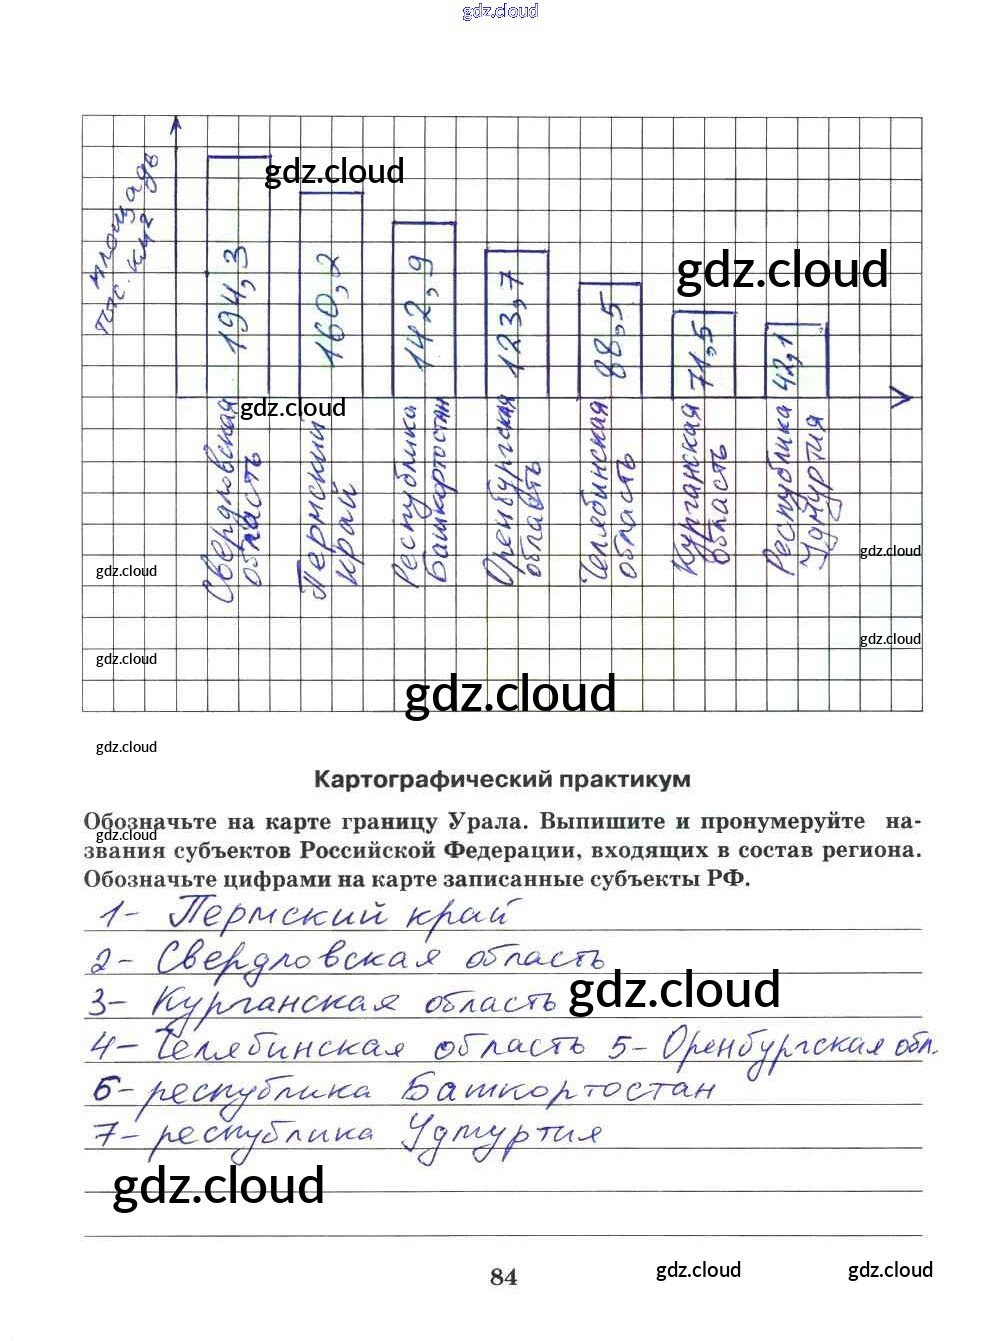 gdz.cloud
площадь
тыс. км2
194,3
160,2
142,9
123,7
88,5
71,5
42,1
gdz.cloud
gdz.cloud
gdz.cloud
Свердловская
область
Пермский
край
Республика
Башкортостан
Оренбургская
область
Челябинская
область
Курганская
область
Республика
Удмуртия
gdz.cloud
gdz.cloud
gdz.cloud
gdz.cloud
gdz.cloud
gdz.cloud
Картографический практикум
Обозначьте на карте границу Урала. Выпишите и пронумеруйте на-
gdz.cloud
звания субъектов Российской Федерации, входящих в состав региона.
Обозначьте цифрами на карте записанные субъекты РФ.
1- Пермский край
2- Свердловская область
3- Курганская область gdz.cloud
4- Челябинская область 5- Оренбургская обл.
6- республика Башкортостан
7- республика Удмуртия
gdz.cloud
84
gdz.cloud
gdz.cloud